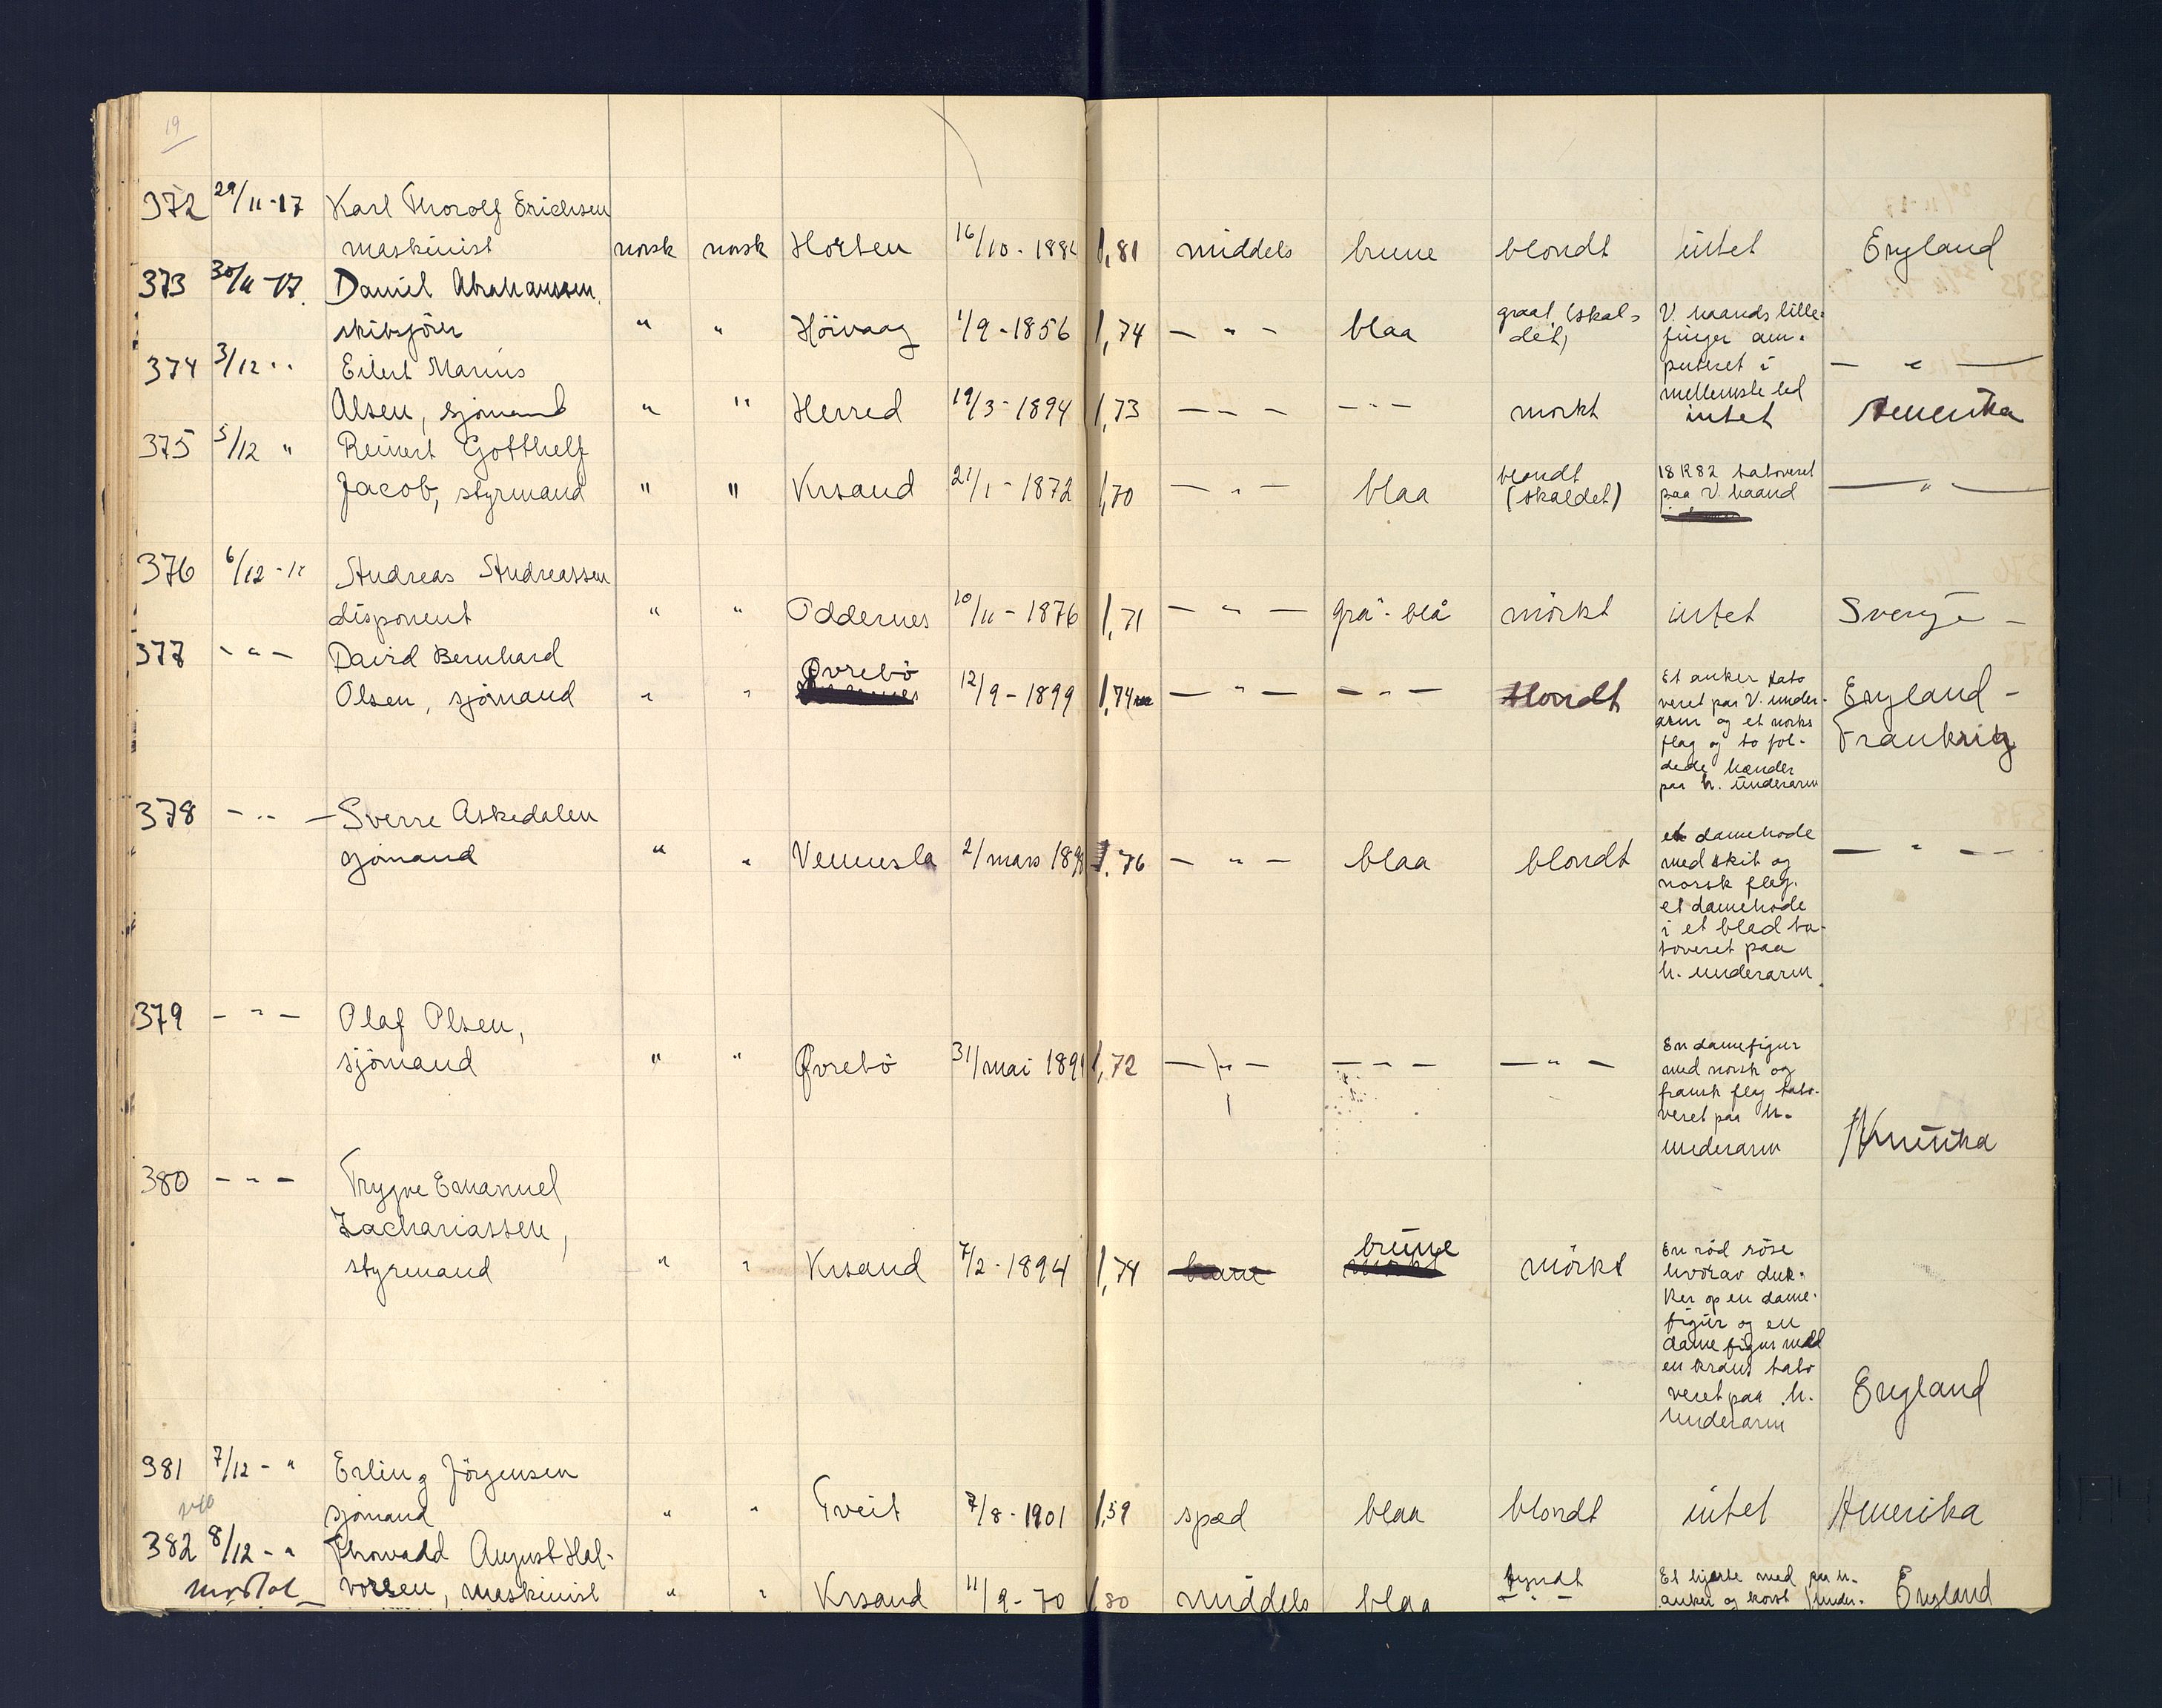 19
372 29/11-17 Karl Thorolf Erichsen
maskinist norsk norsk Horten 16/10-188 1,81 middels brune blondt intet England
373 30/11-17 Daniel Abrahamsen,
skibsförer " " Höivaag 1/9-1856 1,74 — " — blaa graat (skal-
det) V. haands lille-
finger am-
puteret i
mellemste led — " —
374 3/12 " Eilert Marius
Olsen, sjömand " " Herred 19/3-1894 1,73 — " — — " — mörkt intet Amerika
375 5/12 " Reinert Gotthelf
Jacob, styrmand " " Krsand 21/1-1872 1,70 — " — blaa blondt
(skaldet) 18 R 82 tatoveret
paa V. haand — " —
376 6/12 - " Andreas Andreassen
disponent " " Oddernes 10/11-1876 1,71 — " — grå-blå mörkt intet Sverige —
377 — " — David Bernhard
Olsen, sjömand " " Øvrebö 12/9-1899 1,74 — " — — " — blondt Et anker tato
veret paa V. under-
arm og et norks
flag og to fol-
dede hænder
paa h. underarm England -
Frankrig
378 — " — Sverre Askedalen
sjömand " " Vennesla 2/mars 189 1.76 — " — blaa blondt et damehode
med skit og
norsk flag.
et damehode
i et blad ta-
toveret paa
h. underarm. — " —
379 — " — Olaf Olsen,
sjömand " " Øvrebö 31/mai 189 1,72 — " — — " — — " — En damefigur
med norsk og
fransk flag tato-
veret paa h.
underarm Amerika
380 — " — Trygve Emanuel
Zachariassen,
styrmand " " Krsand 7/2-1894 1,74 brune mörkt En röd röse
hvorav duk-
ker op en dame-
figur og en
dame figur med
en krans tato
veret paa h.
underarm England
381 7/12 - " Erling Jörgensen
sjömand " " Tveit 7/8-1901 1,59 spæd blaa blondt intet Amerika
382 8/12 - " Thorvald August Hal-
vorsen, maskinist " " Krsand 11/9-70 1,80 middels blaa tyndt
— " — Et hjerte med paa h.
anker og kors under- England